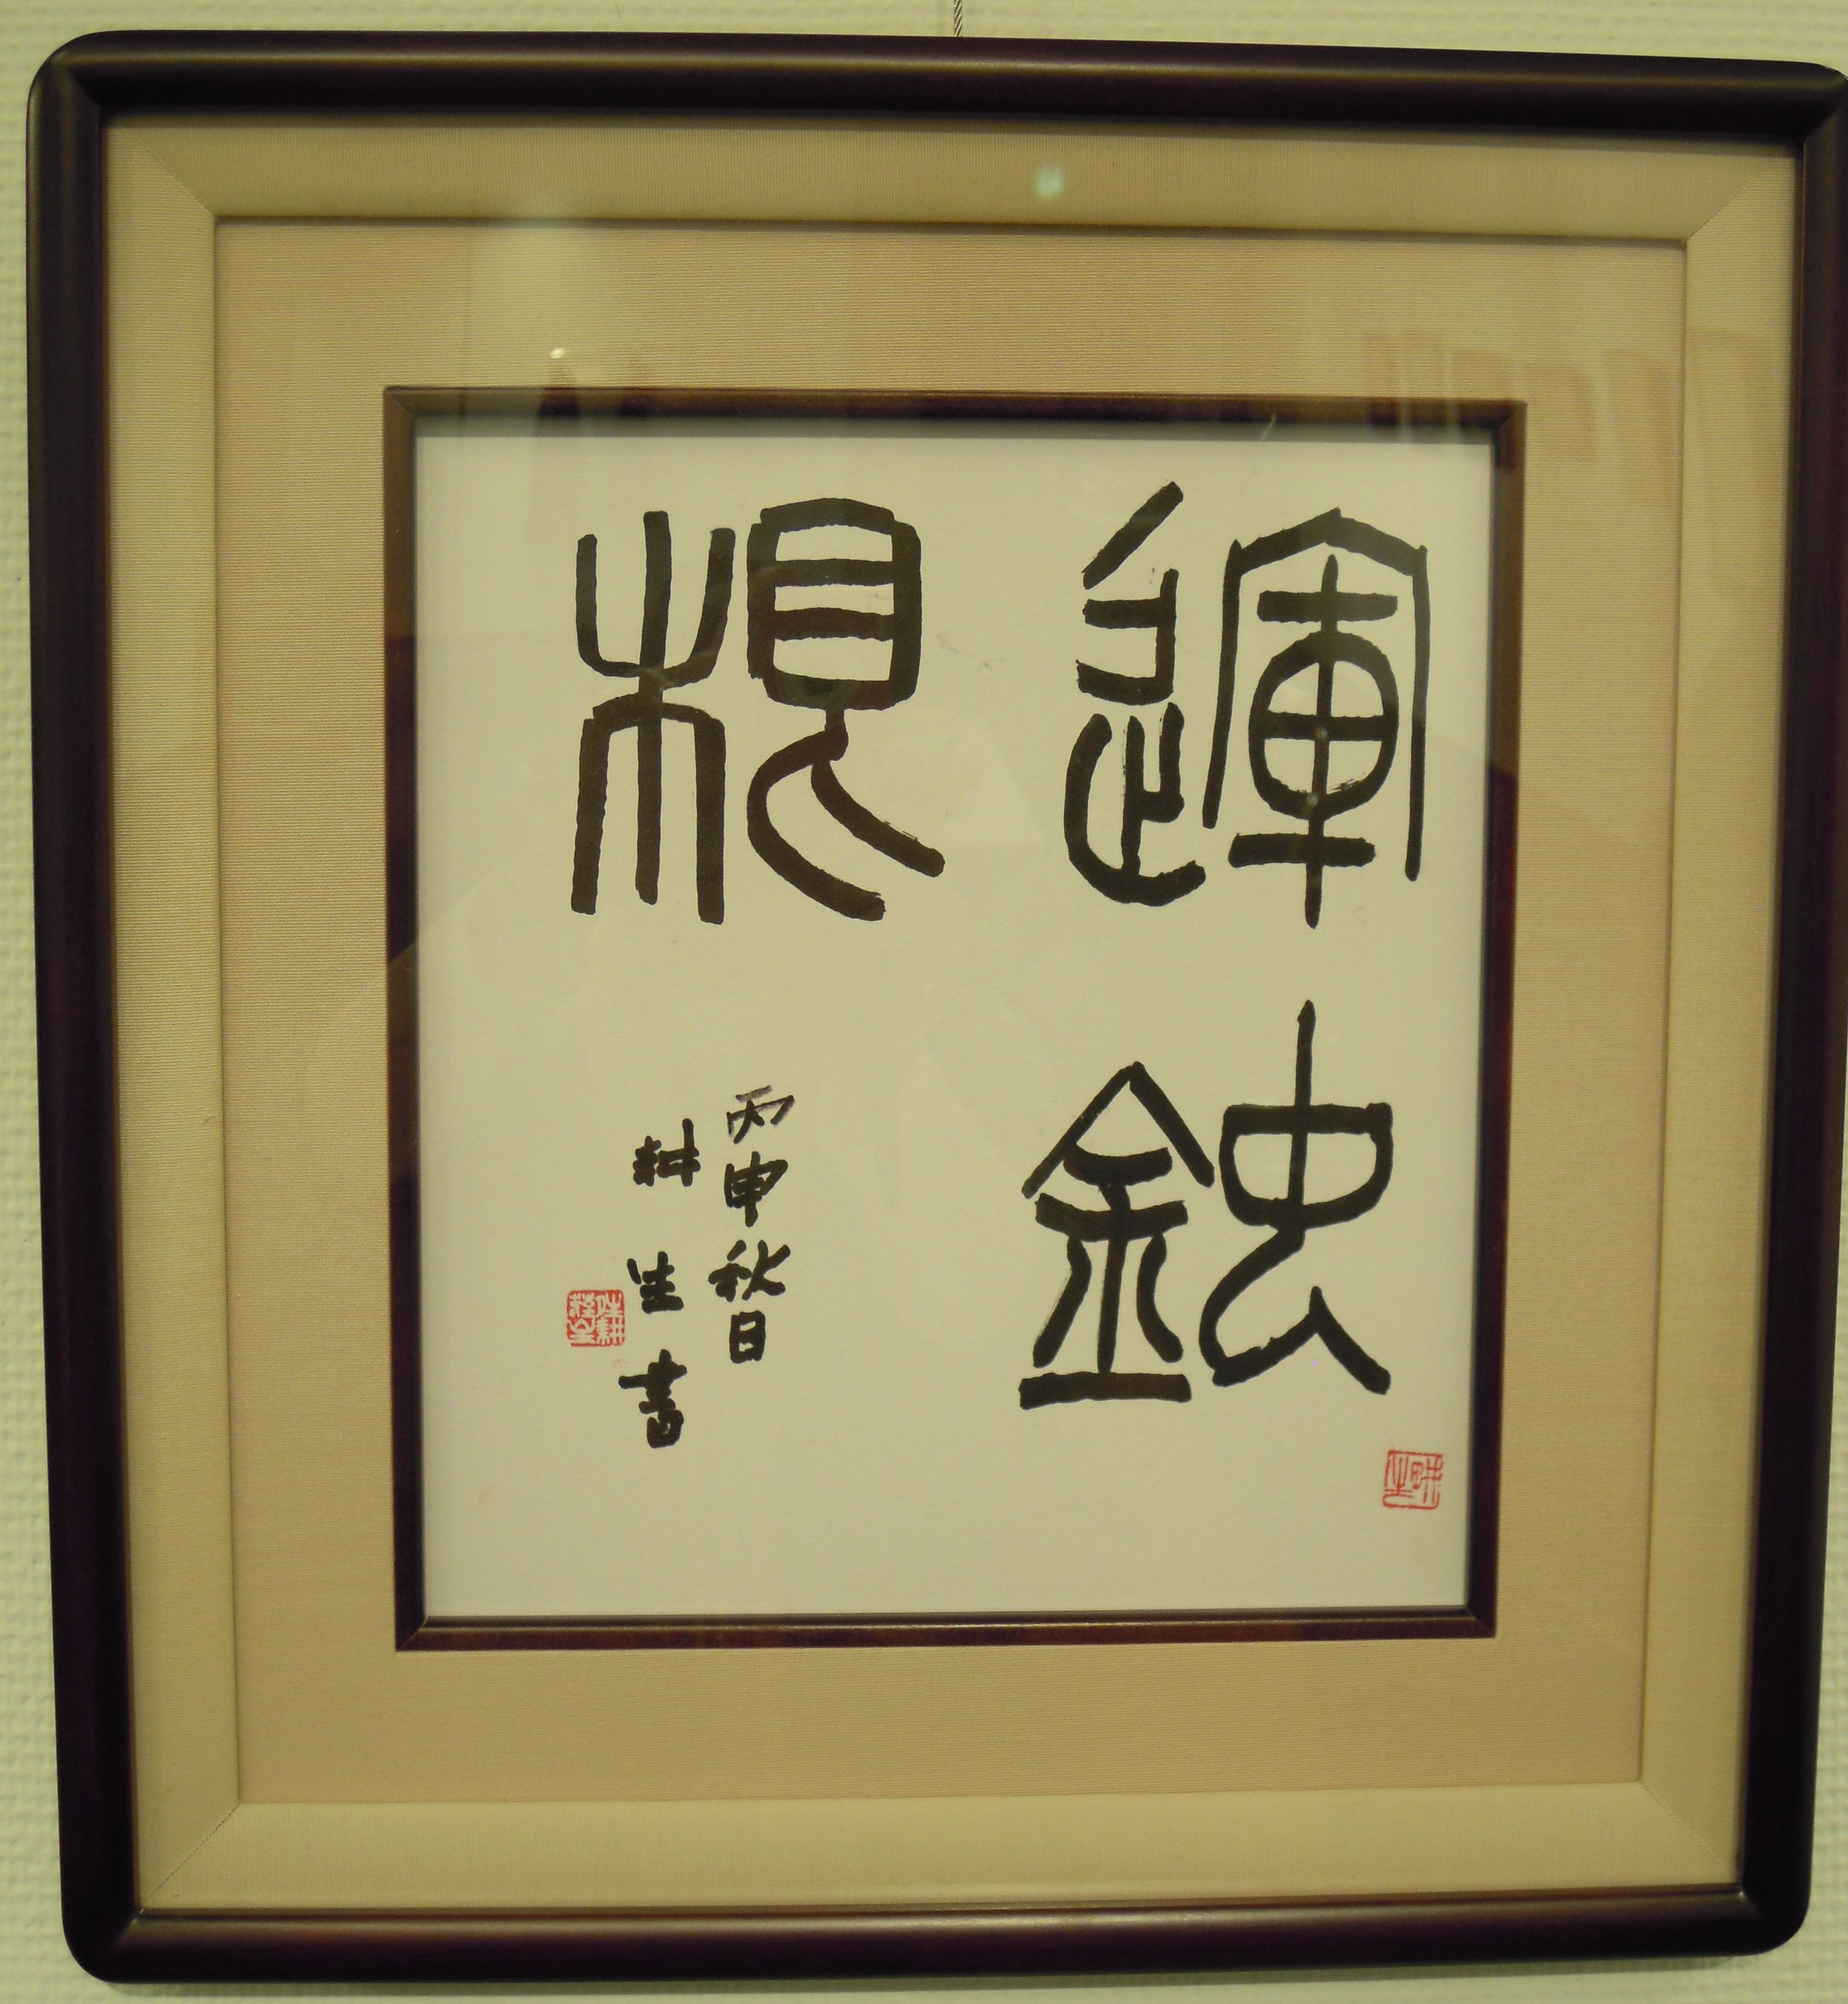 運鈍
根
丙申秋日
耕生書